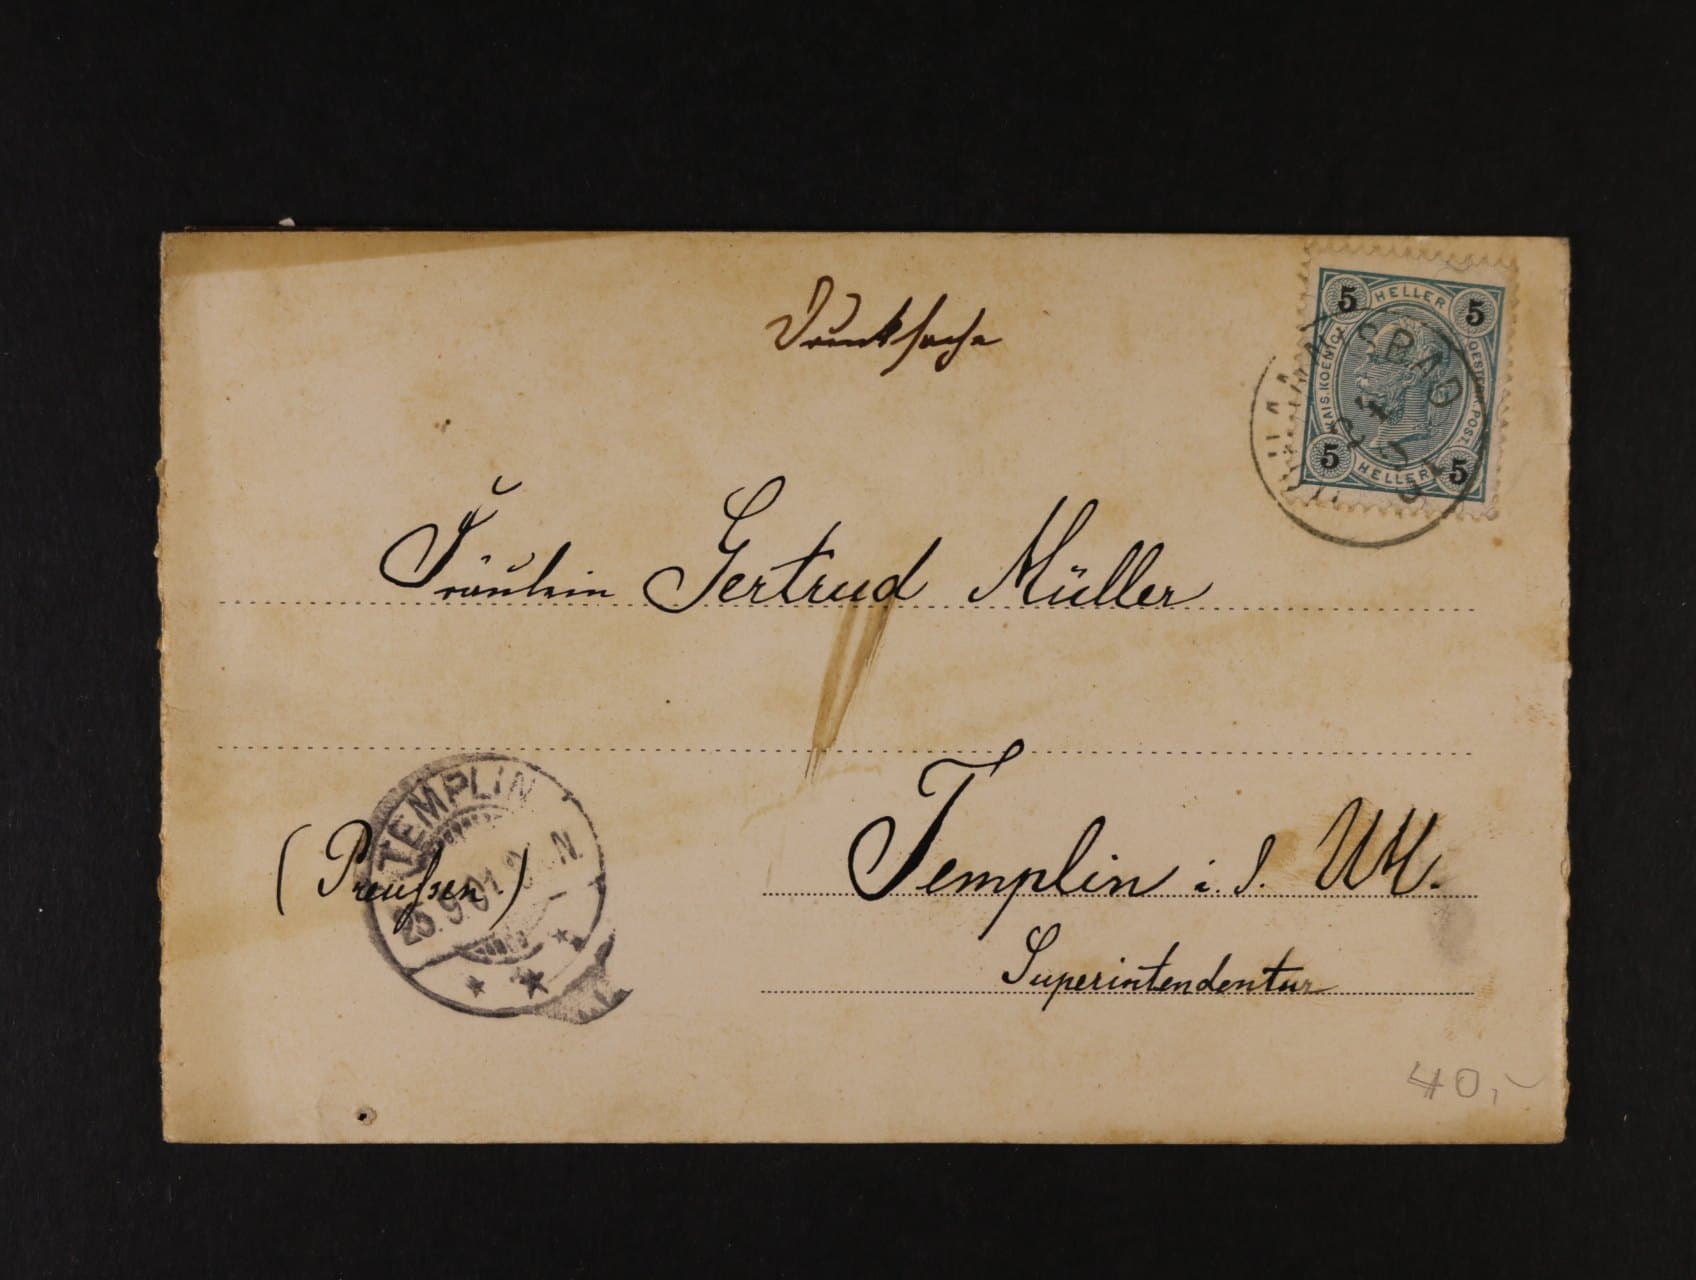 Drucksache
5 HELLER 5
KAIS. KOENIGL. OESTERR. POST.
5 HELLER 5
Fräulein Gertrud Müller
TEMPLIN
25.9.01
N
(Preußen)
Templin i. d. UM.
Superintendentur
40,-